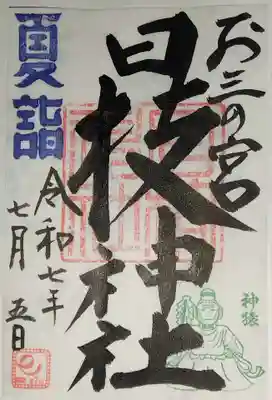 お三の宮
日枝神社
夏詣
令和七年
七月 五日
神猿